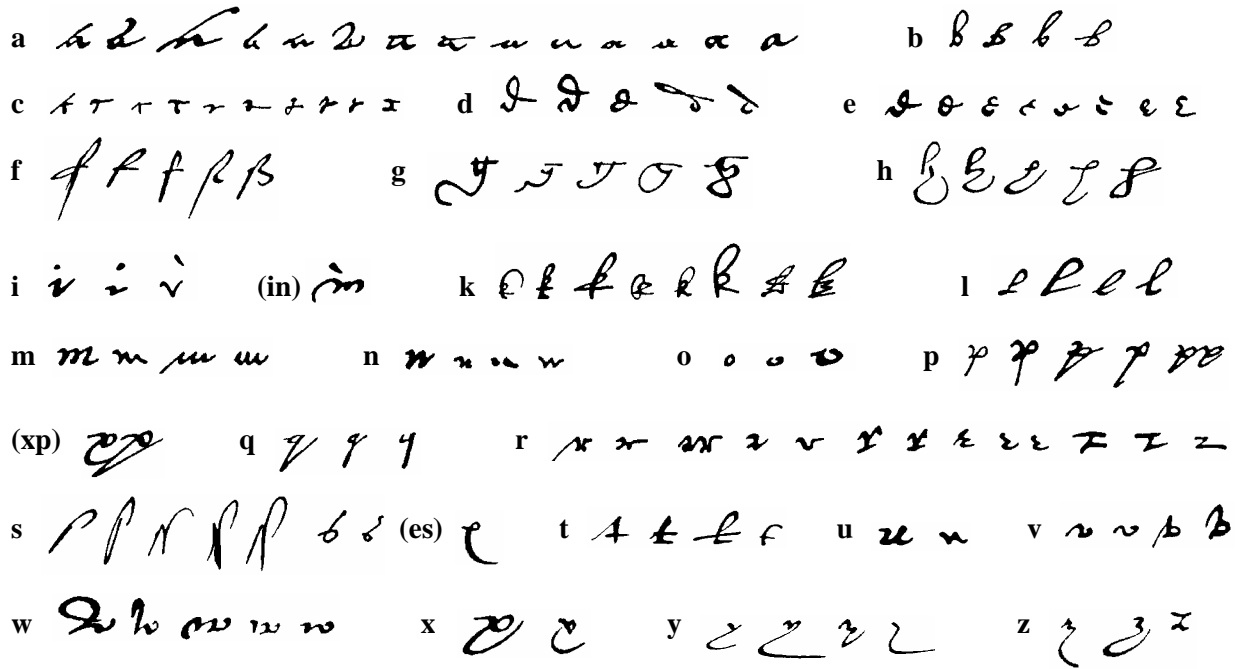 a b
c d e
f g h
i (in) k l
m n o p
(xp) q r
s (es) t u v
w x y z